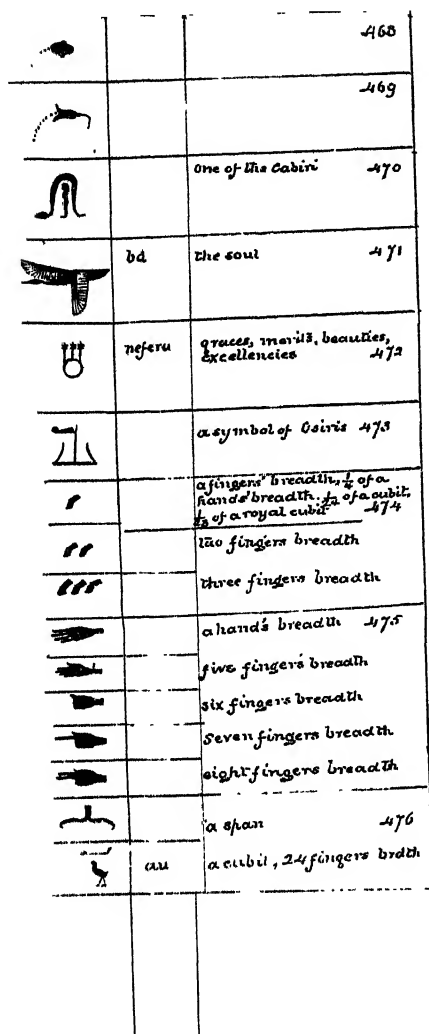 468
469
One of the Cabiri 470
bd the soul 471
neferu graces, merits, beauties,
excellencies 472
a symbol of Osiris 473
a fingers' breadth, ¼ of a
hands' breadth. of a cubit,
of a royal cubit 474
two fingers breadth
three fingers breadth
a hand's breadth 475
five fingers breadth
six fingers breadth
seven fingers breadth
eight fingers breadth
a span 476
au a cubit, 24 fingers brdth